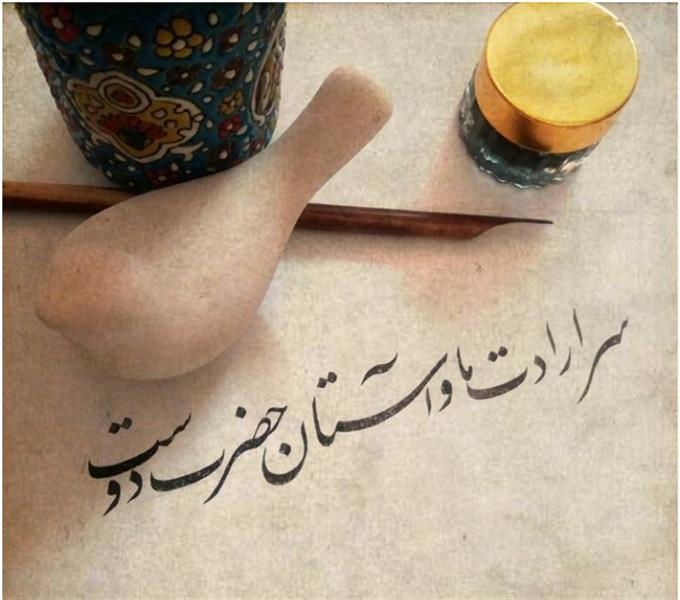 سر ارادت ما و آستان حضرت دوست